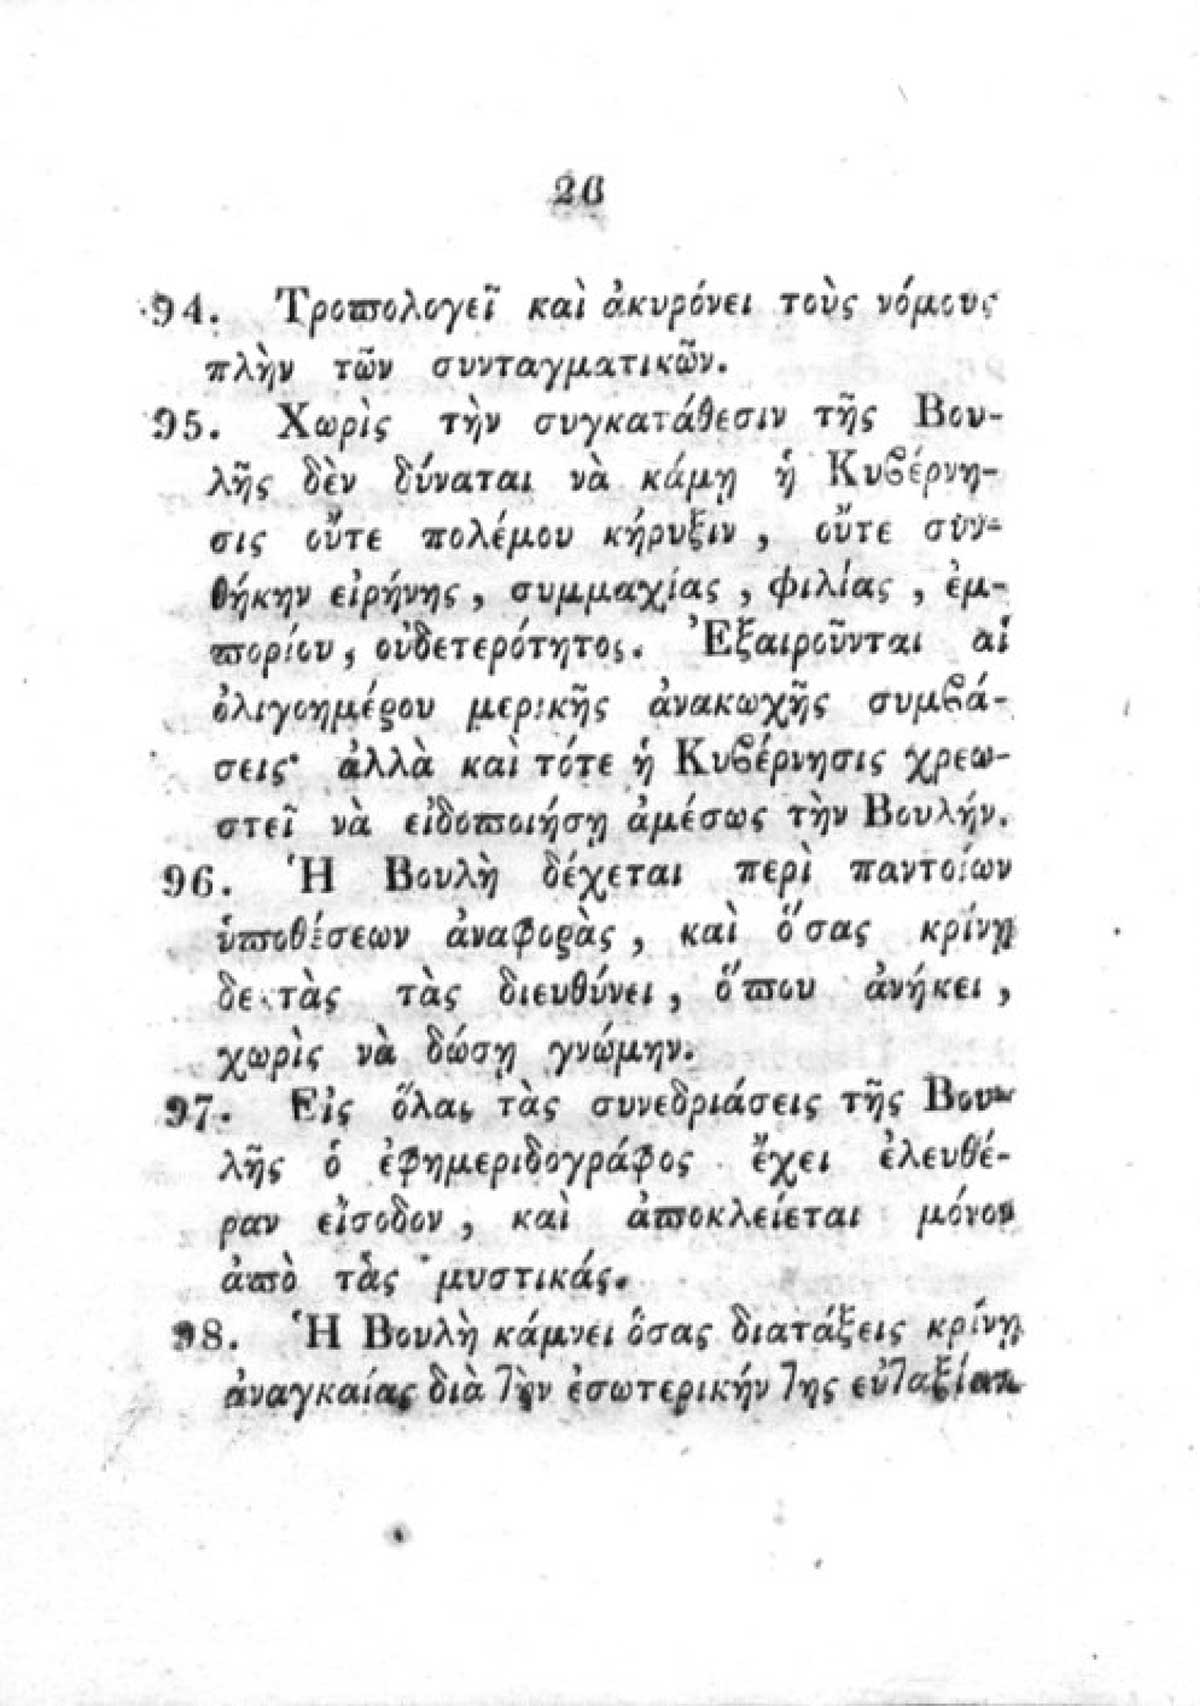 26
94. Τροπολογεῖ καὶ ἀκυρόνει τοὺς νόμους
πλὴν τῶν συνταγματικῶν.
95. Χωρὶς τὴν συγκατάθεσιν τῆς Βου-
λῆς δὲν δύναται νὰ κάμῃ ἡ Κυβέρνη-
σις οὔτε πολέμου κήρυξιν, οὔτε συν-
θήκην εἰρήνης, συμμαχίας, φιλίας, ἐμ-
πορίου, οὐδετερότητος. Ἐξαιροῦνται αἱ
ὀλιγοημέρου μερικῆς ἀνακωχῆς συμβά-
σεις· ἀλλὰ καὶ τότε ἡ Κυβέρνησις χρεω-
στεῖ νὰ εἰδοποιήσῃ ἀμέσως τὴν Βουλήν.
96. Ἡ Βουλὴ δέχεται περὶ παντοίων
ὑποθέσεων ἀναφορὰς, καὶ ὅσας κρίνῃ
δεκτὰς τὰς διευθύνει, ὅπου ἀνήκει,
χωρὶς νὰ δώσῃ γνώμην.
97. Εἰς ὅλας τὰς συνεδριάσεις τῆς Βου-
λῆς ὁ ἐφημεριδογράφος ἔχει ἐλευθέ-
ραν εἴσοδον, καὶ ἀποκλείεται μόνον
ἀπὸ τὰς μυστικάς.
98. Ἡ Βουλὴ κάμνει ὅσας διατάξεις κρίνῃ
ἀναγκαίας διὰ τὴν ἐσωτερικήν της εὐταξίαν